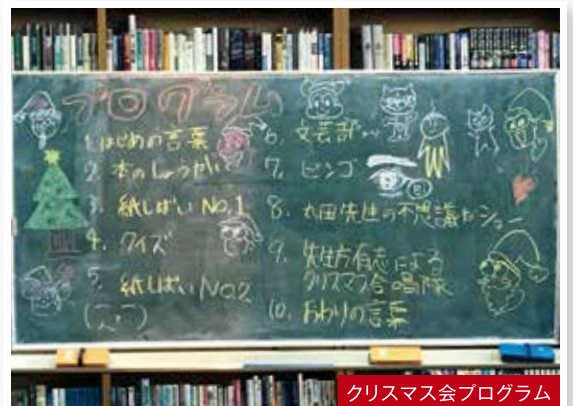 プログラム
1. はじめの言葉
2. 本のしょうかい
3. 紙しばい No.1
4. クイズ
5. 紙しばい No.2
6. 文芸部
7. ビンゴ
8. 丸田先生の不思議なショー
9. 先生方有志による
クリスマス合唱隊
10. おわりの言葉
クリスマス会プログラム